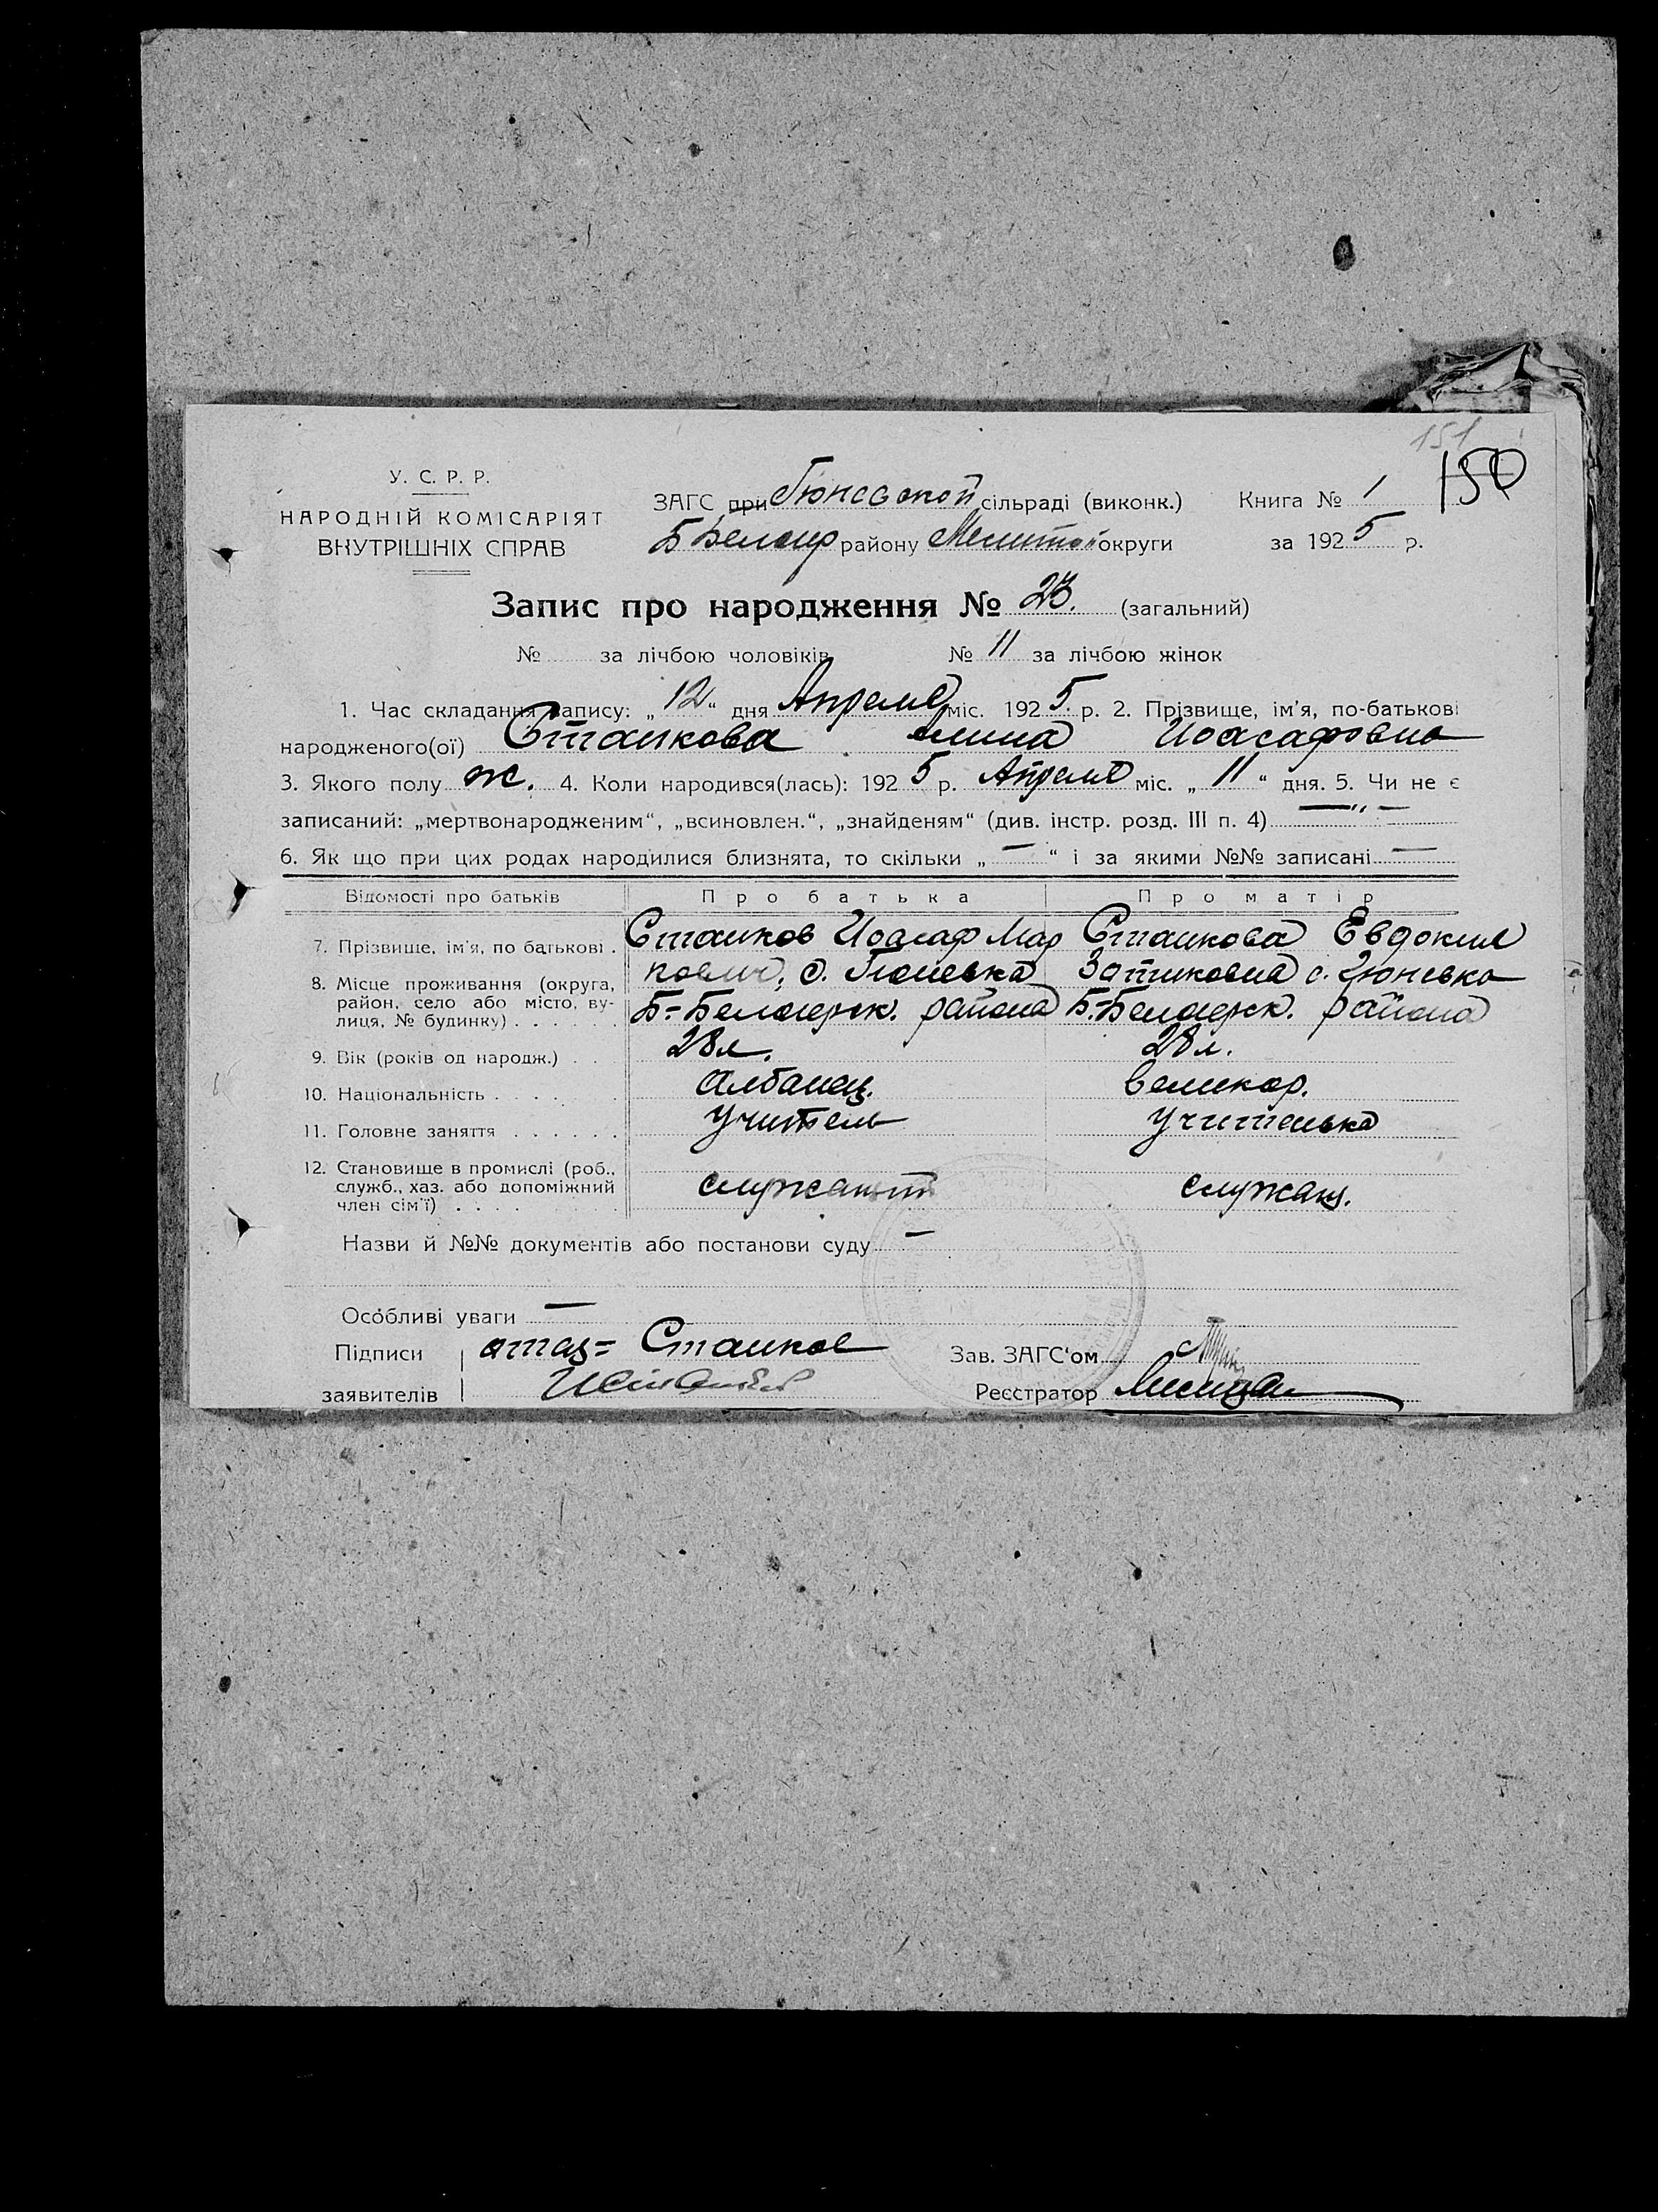 151
150
У. С. Р. Р.
НАРОДНІЙ КОМІСАРІЯТ
ВНУТРІШНІХ СПРАВ
ЗАГС при Гюневской сільраді (виконк.)
Б Белоцер району Мелитоп округи
Книга № 1
за 1925 р.
Запис про народження № 23. (загальний)
№ за лічбою чоловіків № 11 за лічбою жінок
1. Час складання запису: „12“ дня Апреля міс. 1925 р. 2. Прізвище, ім'я, по-батькові
народженого(ої) Станкова Алина Иоасафовна
3. Якого полу ж. 4. Коли народився(лась): 1925 р. Апреля міс. „11“ дня. 5. Чи не є
записаний: „мертвонародженим“, „всиновлен.“, „знайденям“ (див. інстр. розд. III п. 4) —"—
6. Як що при цих родах народилися близнята, то скільки „—“ і за якими №№ записані —
Відомості про батьків Про батька Про матір
7. Прізвище, ім'я, по батькові . Станков Иоасаф Мар Станкова Евдокия
8. Місце проживання (округа, район, село або місто, вулиця, № будинку) . . . . . . кович, с. Гюневка с. Гюневка
Б=Белоцерк. района Б=Белоцерк. района
9. Вік (років од народж.) . . 28 л. 28 л.
10. Національність . . . . Албанец. великор.
11. Головне заняття . . . . . . учитель учителька
12. Становище в промислі (роб., служб., хаз. або допоміжний член сім'ї) . . . . служащий служащ.
Назви й №№ документів або постанови суду —
Особливі уваги —
Підписи заявителів отец= Станков
Зав. ЗАГС'ом
Реєстратор